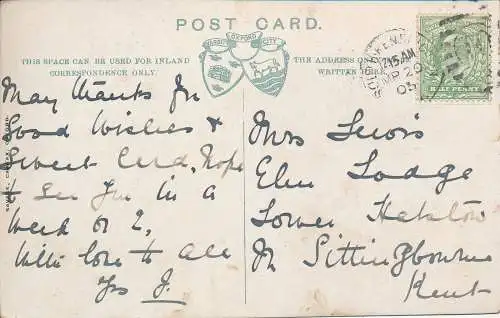 POST CARD.
VARSITY OXFORD CITY
THIS SPACE CAN BE USED FOR INLAND
CORRESPONDENCE ONLY.
THE ADDRESS ON
WRITTEN HERE
7.15 AM
03
HALFPENNY
Many thanks for
Good Wishes &
Sweet Card, Hope
to see you in a
week or 2,
With love to all
Yrs J.
Mrs Lewis
Elm Lodge
Lower Halstow
Nr Sittingbourne
Kent